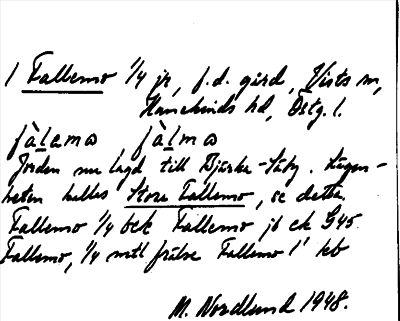 1 Fallemo 1/4 jr, f.d. gård, Vists sn,
Hanekinds hd, Östg. l.
fàlamo, fàlmo
Jorden nu lagd till Bjärka-Säby. Lägen-
heten kallas Stora Fallemo, se detta.
Fallemo 1/4 bek Fallemo jb ek G45
Fallemo, 1/4 mtl frälse Fallemo 1' kb
M. Nordlund 1948.